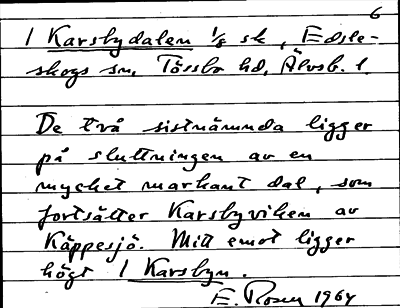 6
1 Karsbydalen 1/8 sk, Edsle-
skogs sn, Tössbo hd, Älvsb. l.
De två sistnämnda ligger
på sluttningen av en
mycket markant dal, som
fortsätter Karsbyviken av
Käppesjö. Mitt emot ligger
högt 1 Karsbyn.
E. Rosen 1964